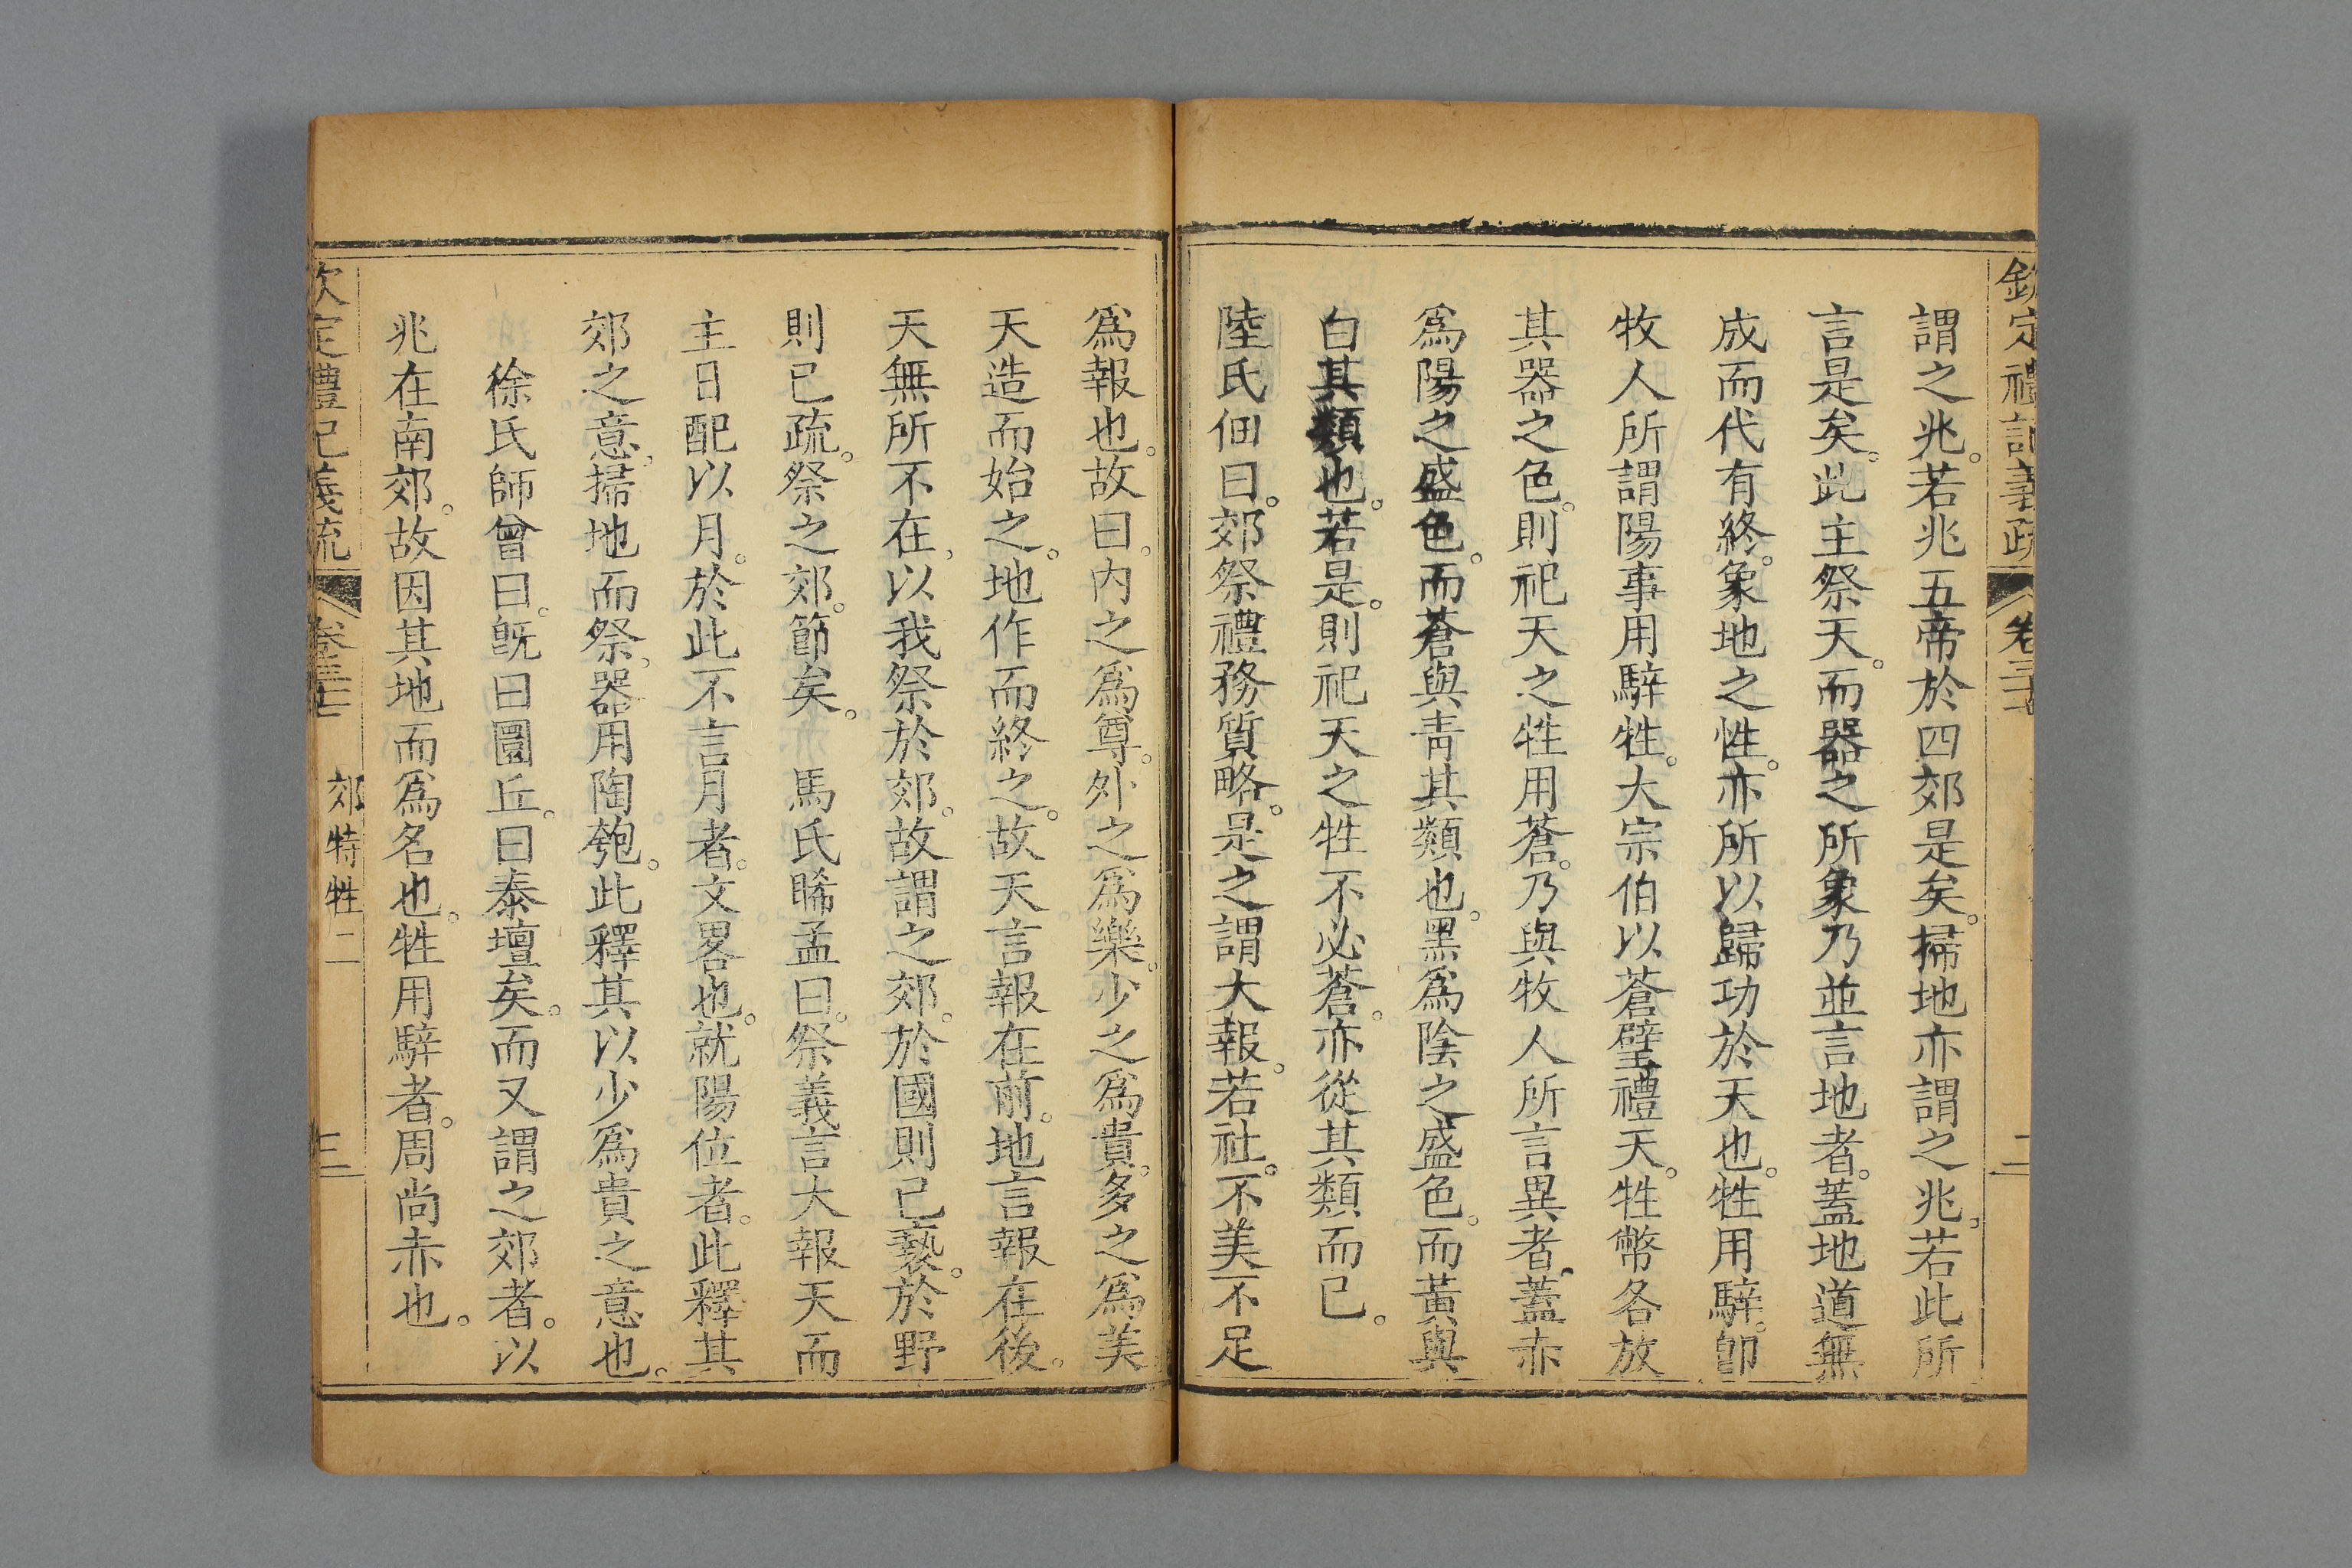 欽定禮記義疏 卷三十七 二
謂之兆。若兆五帝於四郊是矣。掃地亦謂之兆。若此所
言是矣。此主祭天。而器之所象乃並言地者。蓋地道無
成而代有終。象地之性。亦所以歸功於天也。牲用騂。卽
牧人所謂陽事用騂牲。大宗伯以蒼璧禮天。牲幣各放
其器之色。則祀天之牲用蒼。乃與牧人所言異者。蓋赤
爲陽之盛色。而蒼與靑其類也。黑爲陰之盛色。而黃與
白其類也。若是。則祀天之牲不必蒼。亦從其類而已。
陸氏佃曰。郊祭禮務質略。是之謂大報。若社。不美不足
爲報也。故曰。内之爲尊。外之爲樂。少之爲貴。多之爲美。
天造而始之。地作而終之。故天言報在前。地言報在後。
天無所不在。以我祭於郊。故謂之郊。於國則已褻。於野
則已疏。祭之郊。節矣。 馬氏晞孟曰。祭義言大報天而
主日配以月。於此不言月者。文畧也。就陽位者。此釋其
郊之意。掃地而祭。器用陶匏。此釋其以少爲貴之意也。
徐氏師曾曰。旣曰圜丘。曰泰壇矣。而又謂之郊者。以
兆在南郊。故因其地而爲名也。牲用騂者。周尚赤也。
欽定禮記義疏 卷三十七 郊特牲二 三